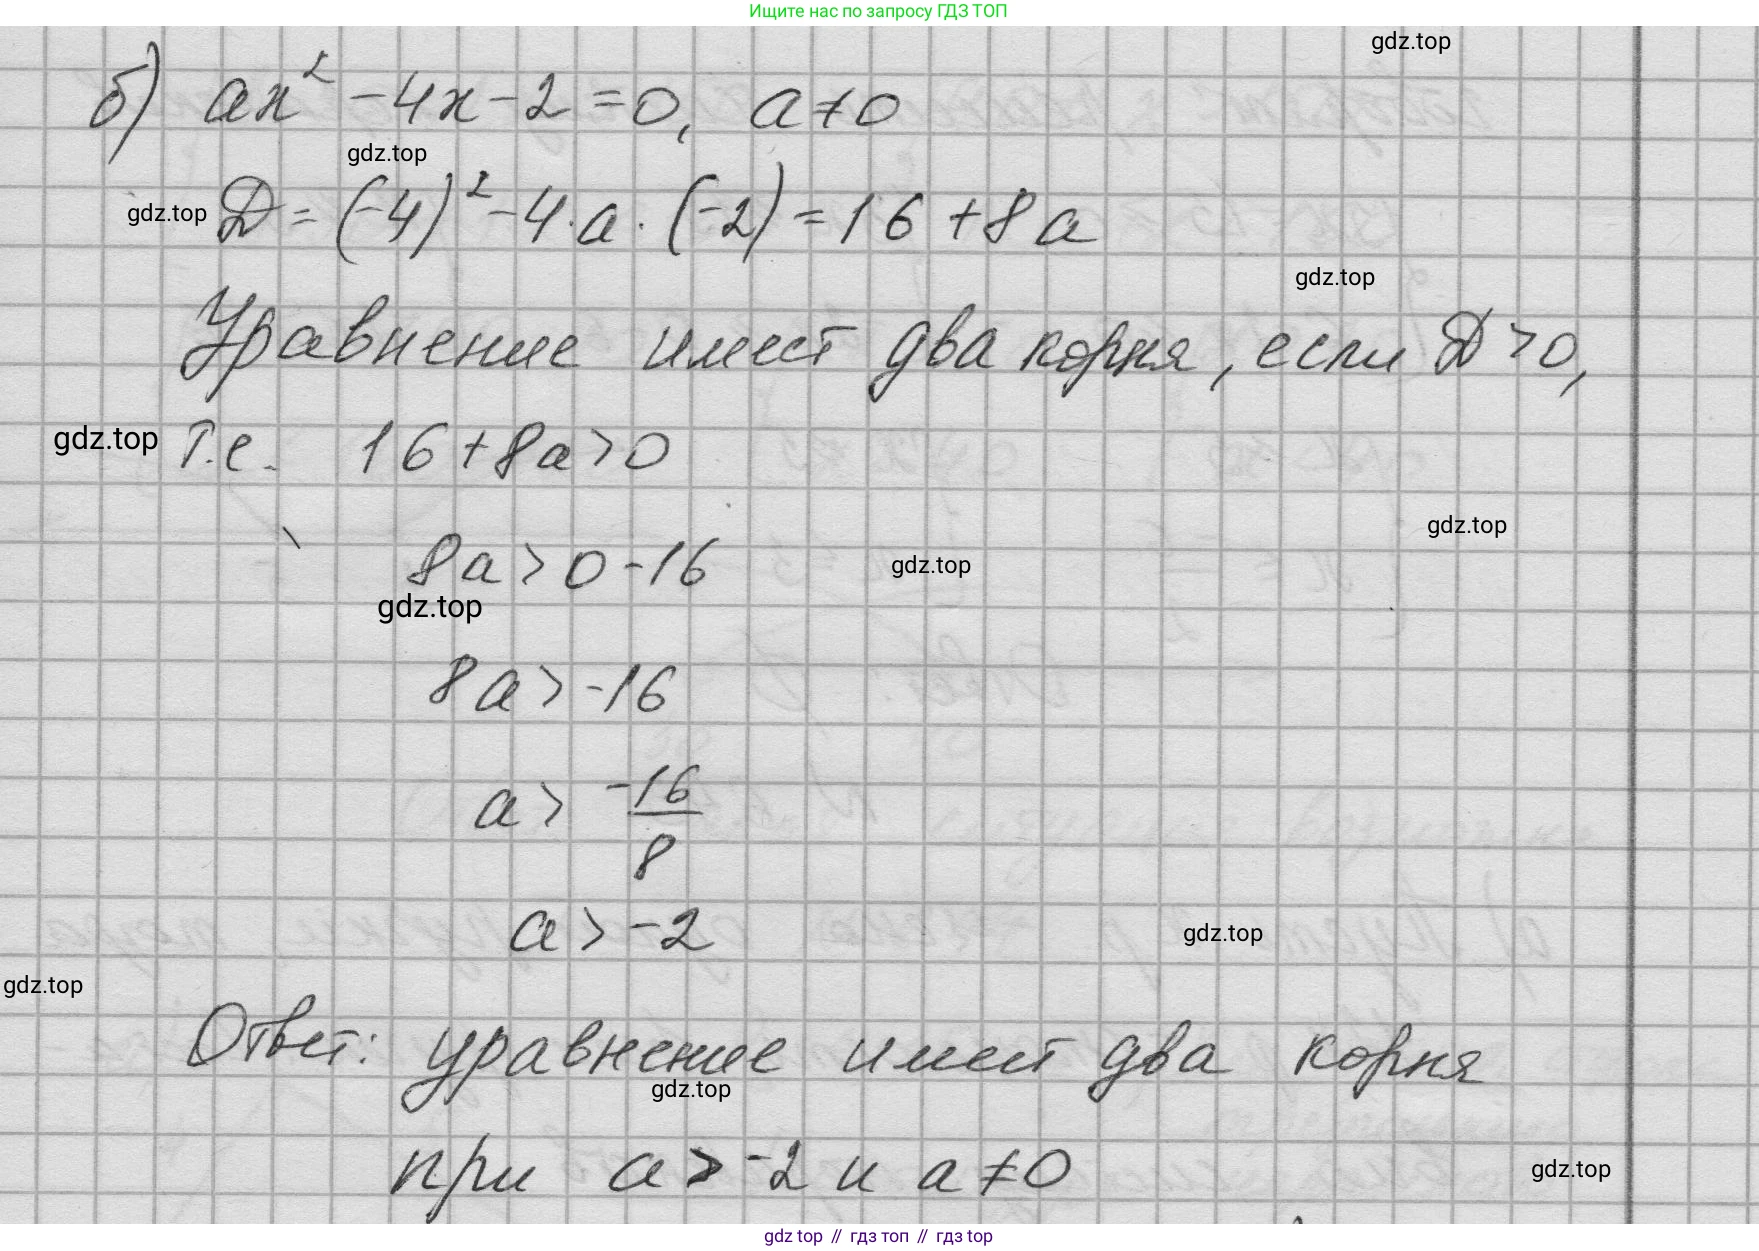 Ищите нас по запросу ГДЗ ТОП
gdz.top
б) ax² - 4x - 2 = 0, a ≠ 0
gdz.top
gdz.top
D = (-4)² - 4 · a · (-2) = 16 + 8a
gdz.top
Уравнение имеет два корня, если D > 0,
gdz.top
т.е. 16 + 8a > 0
gdz.top
8a > 0 - 16
gdz.top
gdz.top
8a > -16
a > -16/8
a > -2
gdz.top
gdz.top
Ответ: уравнение имеет два корня
gdz.top
при a > -2 и a ≠ 0
gdz.top
gdz top // гдз топ // gdz top